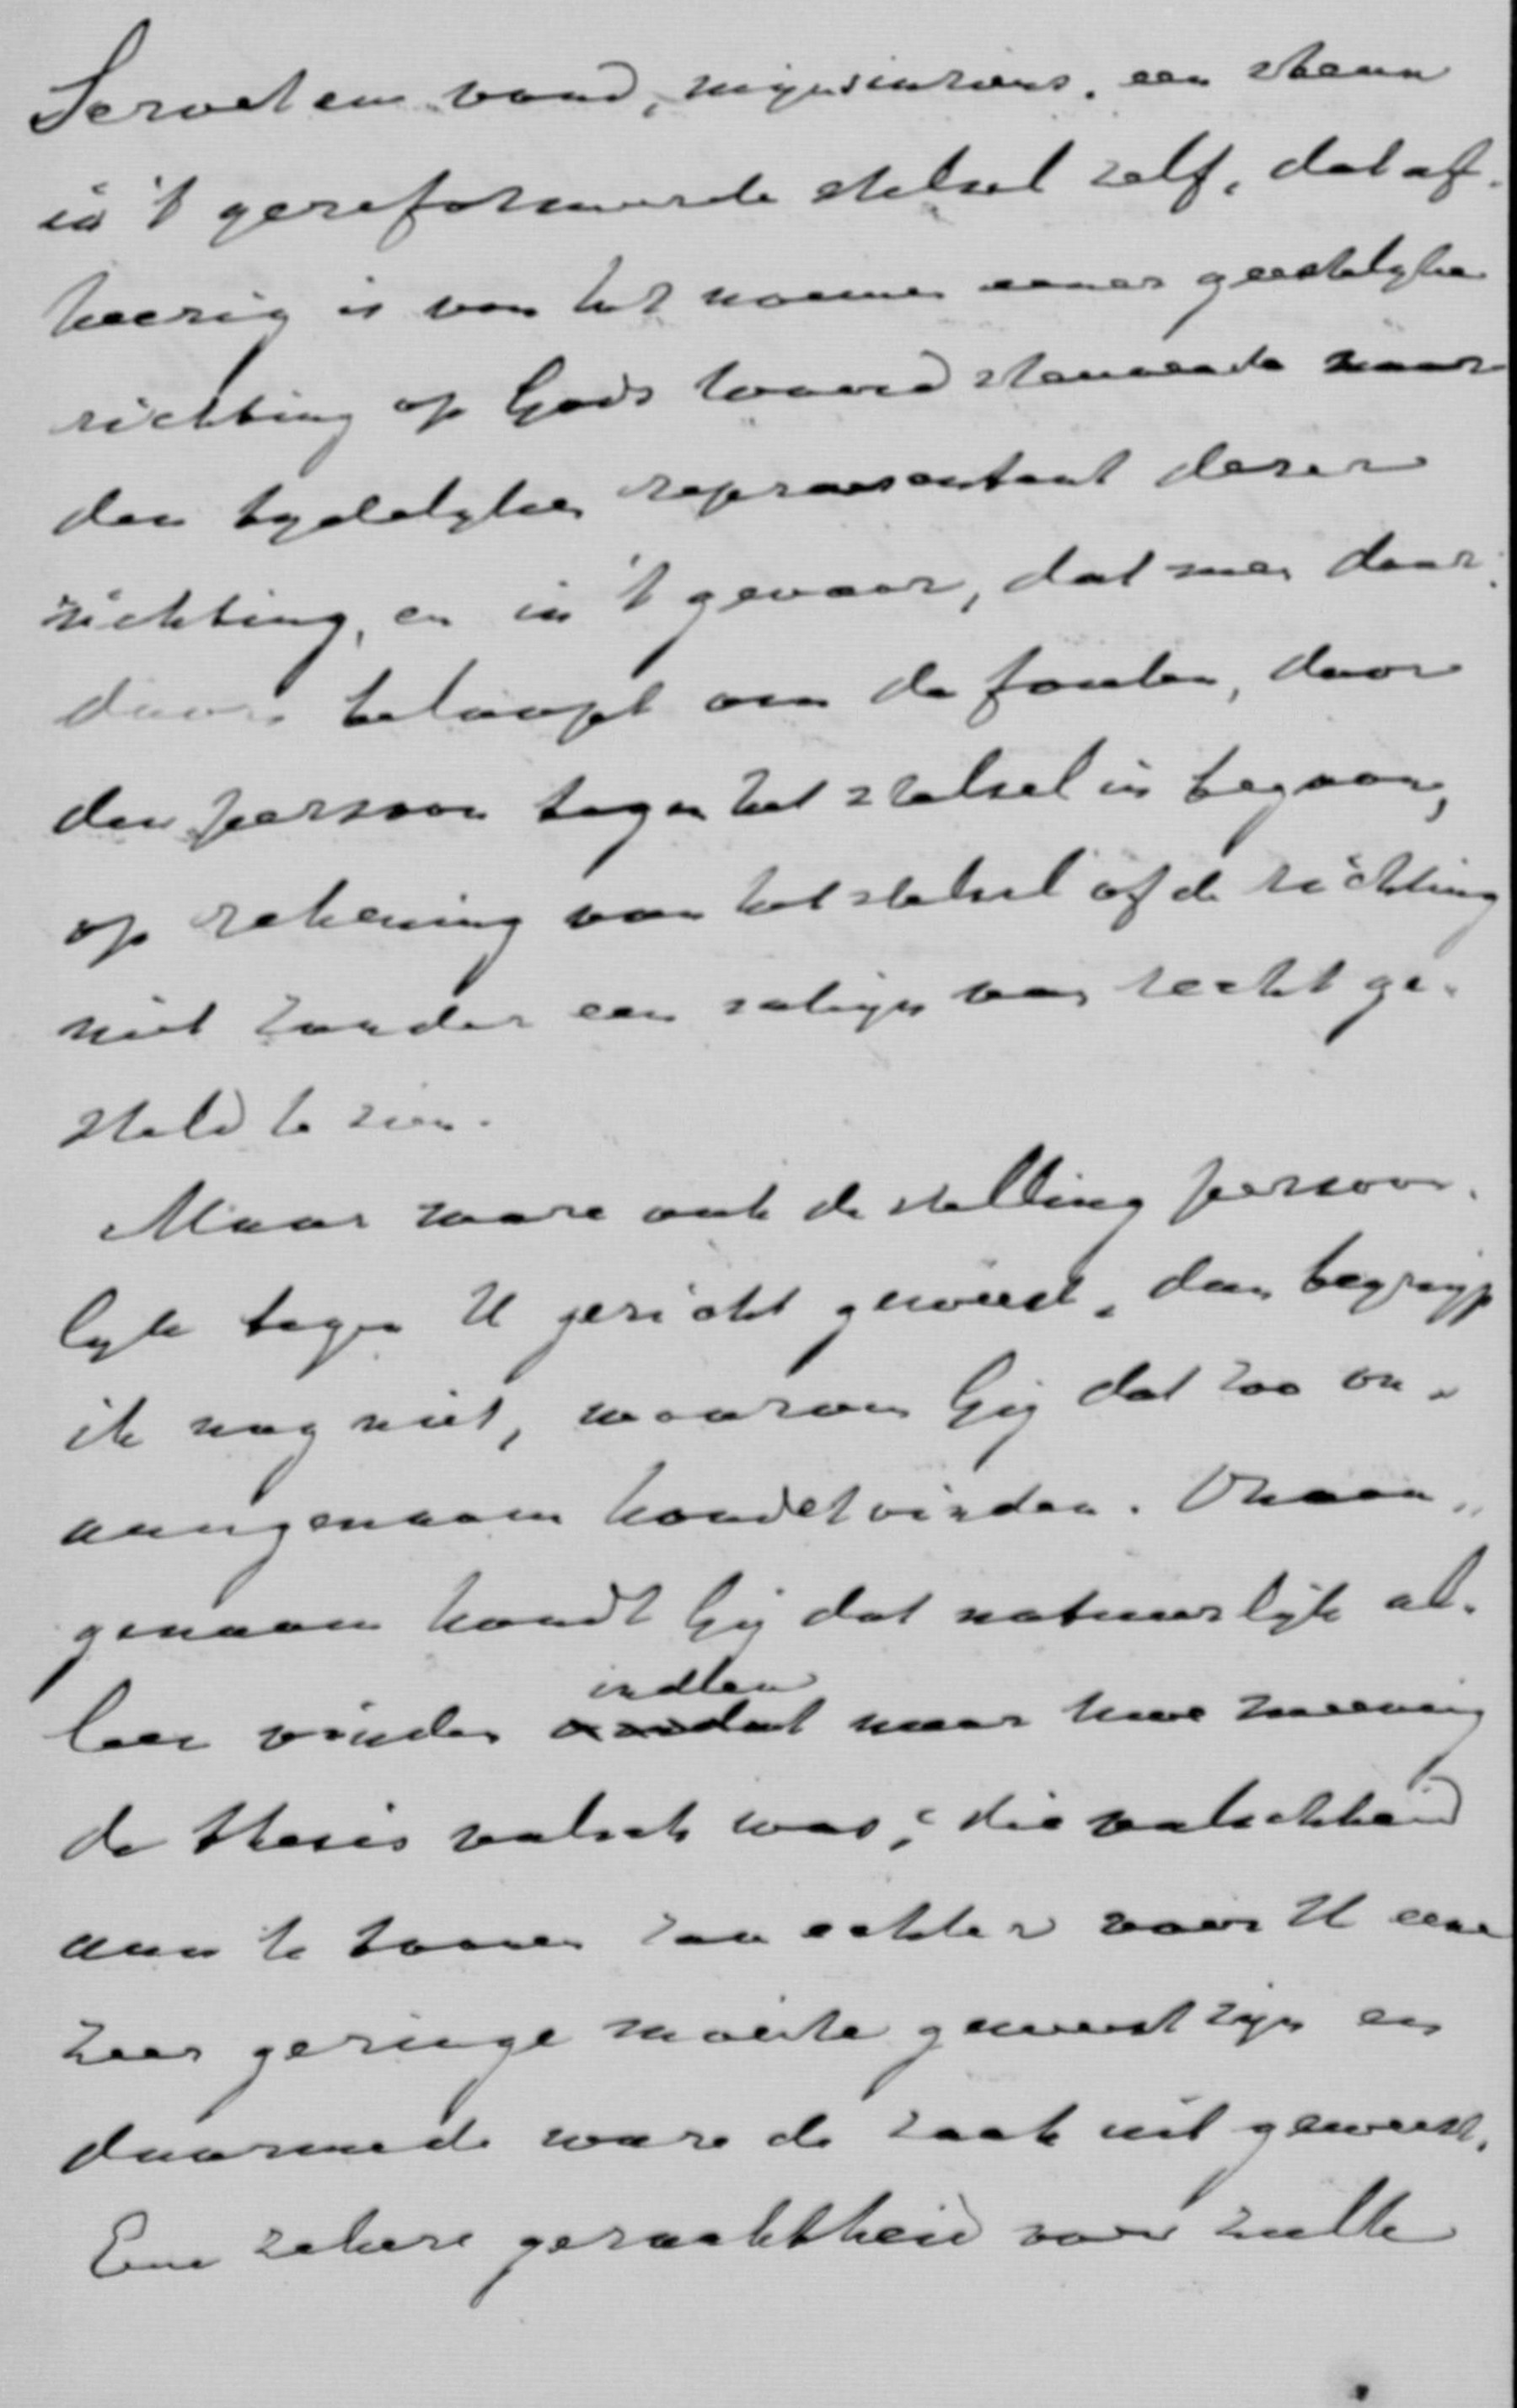 Servet en vond, mijns inziens, een steun
in 't gereformeerde stelsel zelf, dat af-
keerig is van het noemen eener geestelyke
richting op Gods woord steunende naar
den tydelyken repraesentant dezer
richting, en in 't gevaar, dat men daar-
door beloopt om de fouten, door
den persoon tegen het stelsel in begaan,
op rekening van het stelsel of de richting
niet zonder een schijn van recht ge-
steld te zien.
Maar ware ook de stelling persoon-
lyk tegen U gericht geweest, dan begrijp
ik nog niet, waarom Gij dat zoo on-
aangenaam kondet vinden. Onaan-
genaam kondt Gij dat natuurlijk al-
leen vinden indien naar Uwe meening
de thesis valsch was; die valschheid
aan te toonen zou echter voor U eene
zeer geringe moeite geweest zijn en
daarmede ware de zaak uit geweest.
Eene zekere geraaktheid over zulke